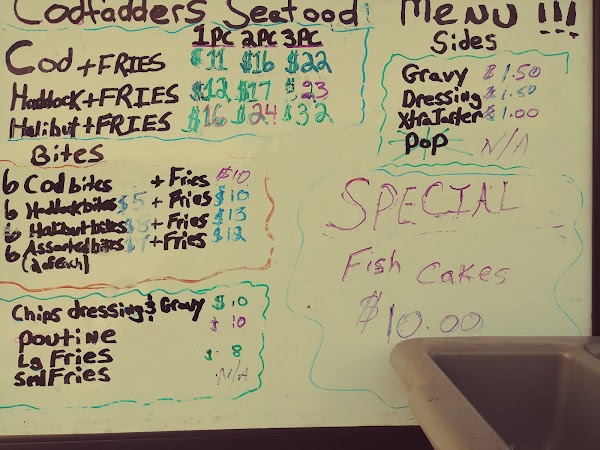 Codfadders Seafood Menu !!!
1PC 2PC 3PC
Cod + FRIES $11 $16 $22
Haddock + FRIES $12 $17 $23
Halibut + FRIES $16 $24 $32
Bites
6 Cod bites + Fries $10
6 Haddock bites $5 + Fries $10
6 Halibut bites $8 + Fries $13
6 Assorted bites + Fries $12
(2 of each)
Chips dressing & Gravy $10
Poutine $10
Lg Fries $8
Sml Fries N/A
Sides
Gravy $1.50
Dressing $1.50
Xtra Tarter $1.00
Pop N/A
SPECIAL
Fish Cakes
$10.00